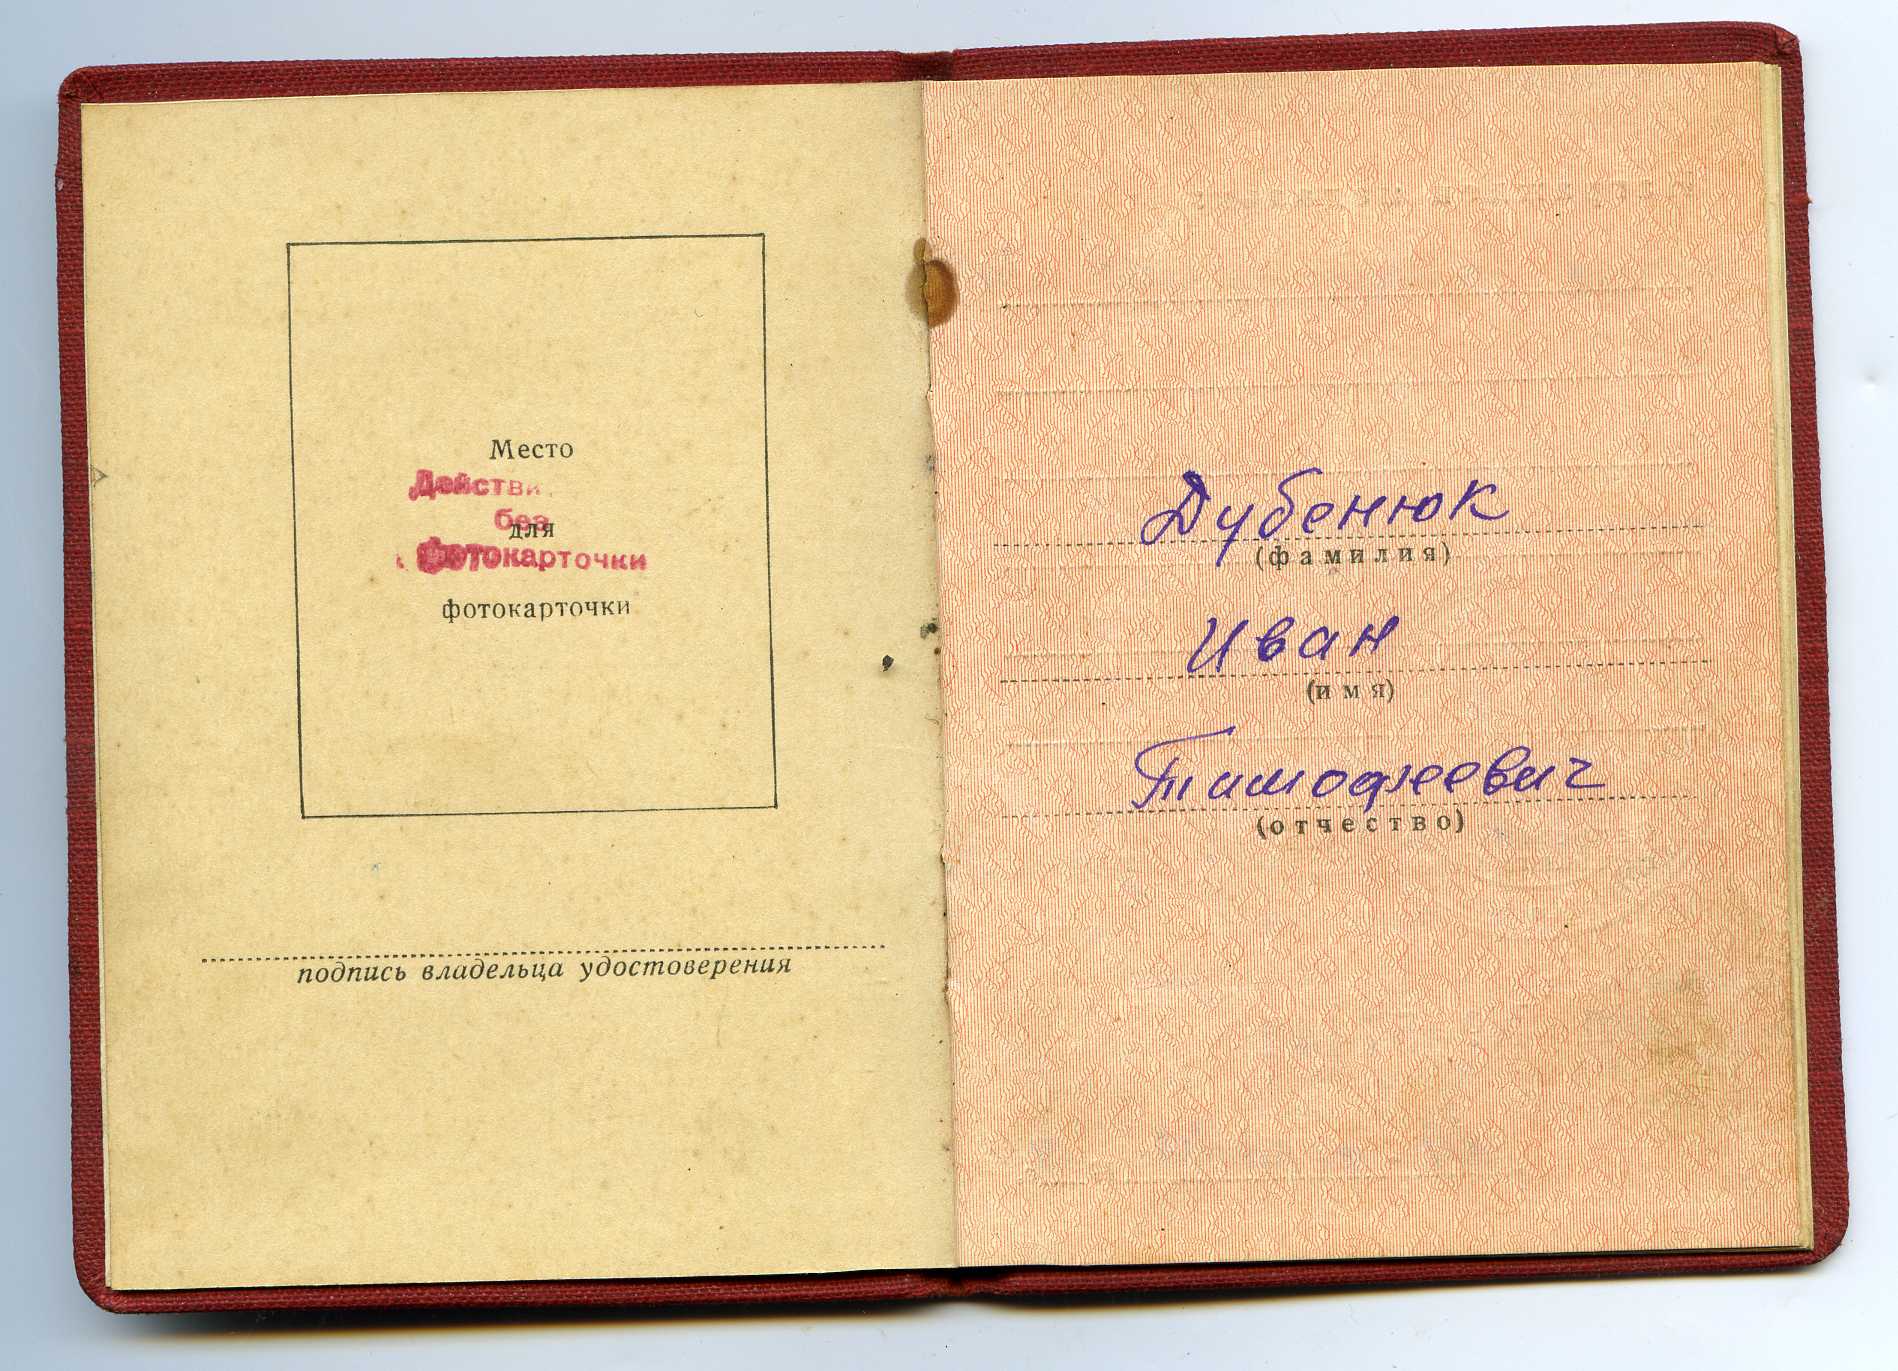 Место
Действи
без
для
Фотокарточки
фотокарточки
подпись владельца удостоверения
Дубенюк
(фамилия)
Иван
(имя)
Тимофеевич
(отчество)